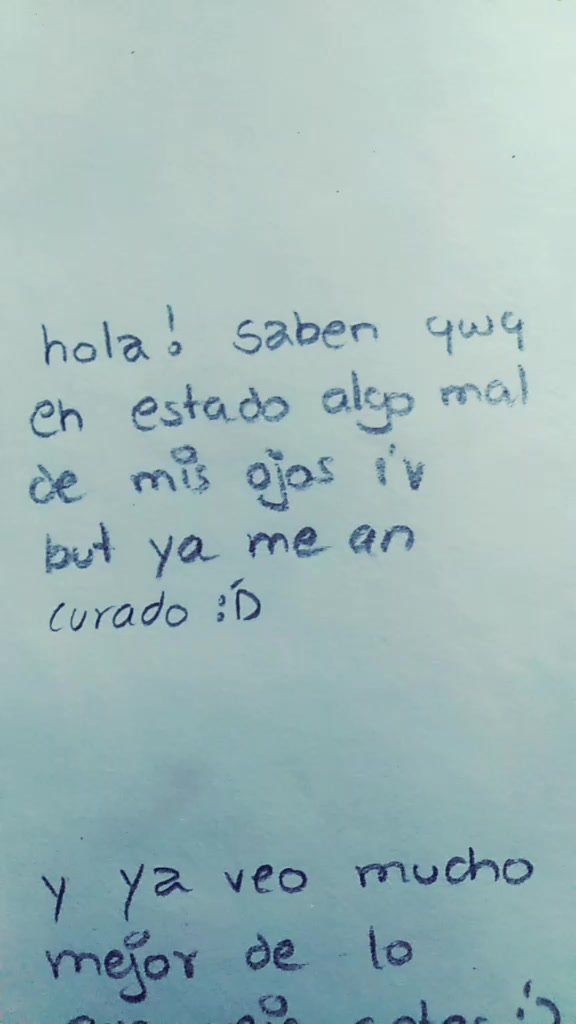 hola! saben qwq
eh estado algo mal
de mis ojos i'v
but ya me an
curado :'D
y ya veo mucho
mejor de lo
que veia antes :')